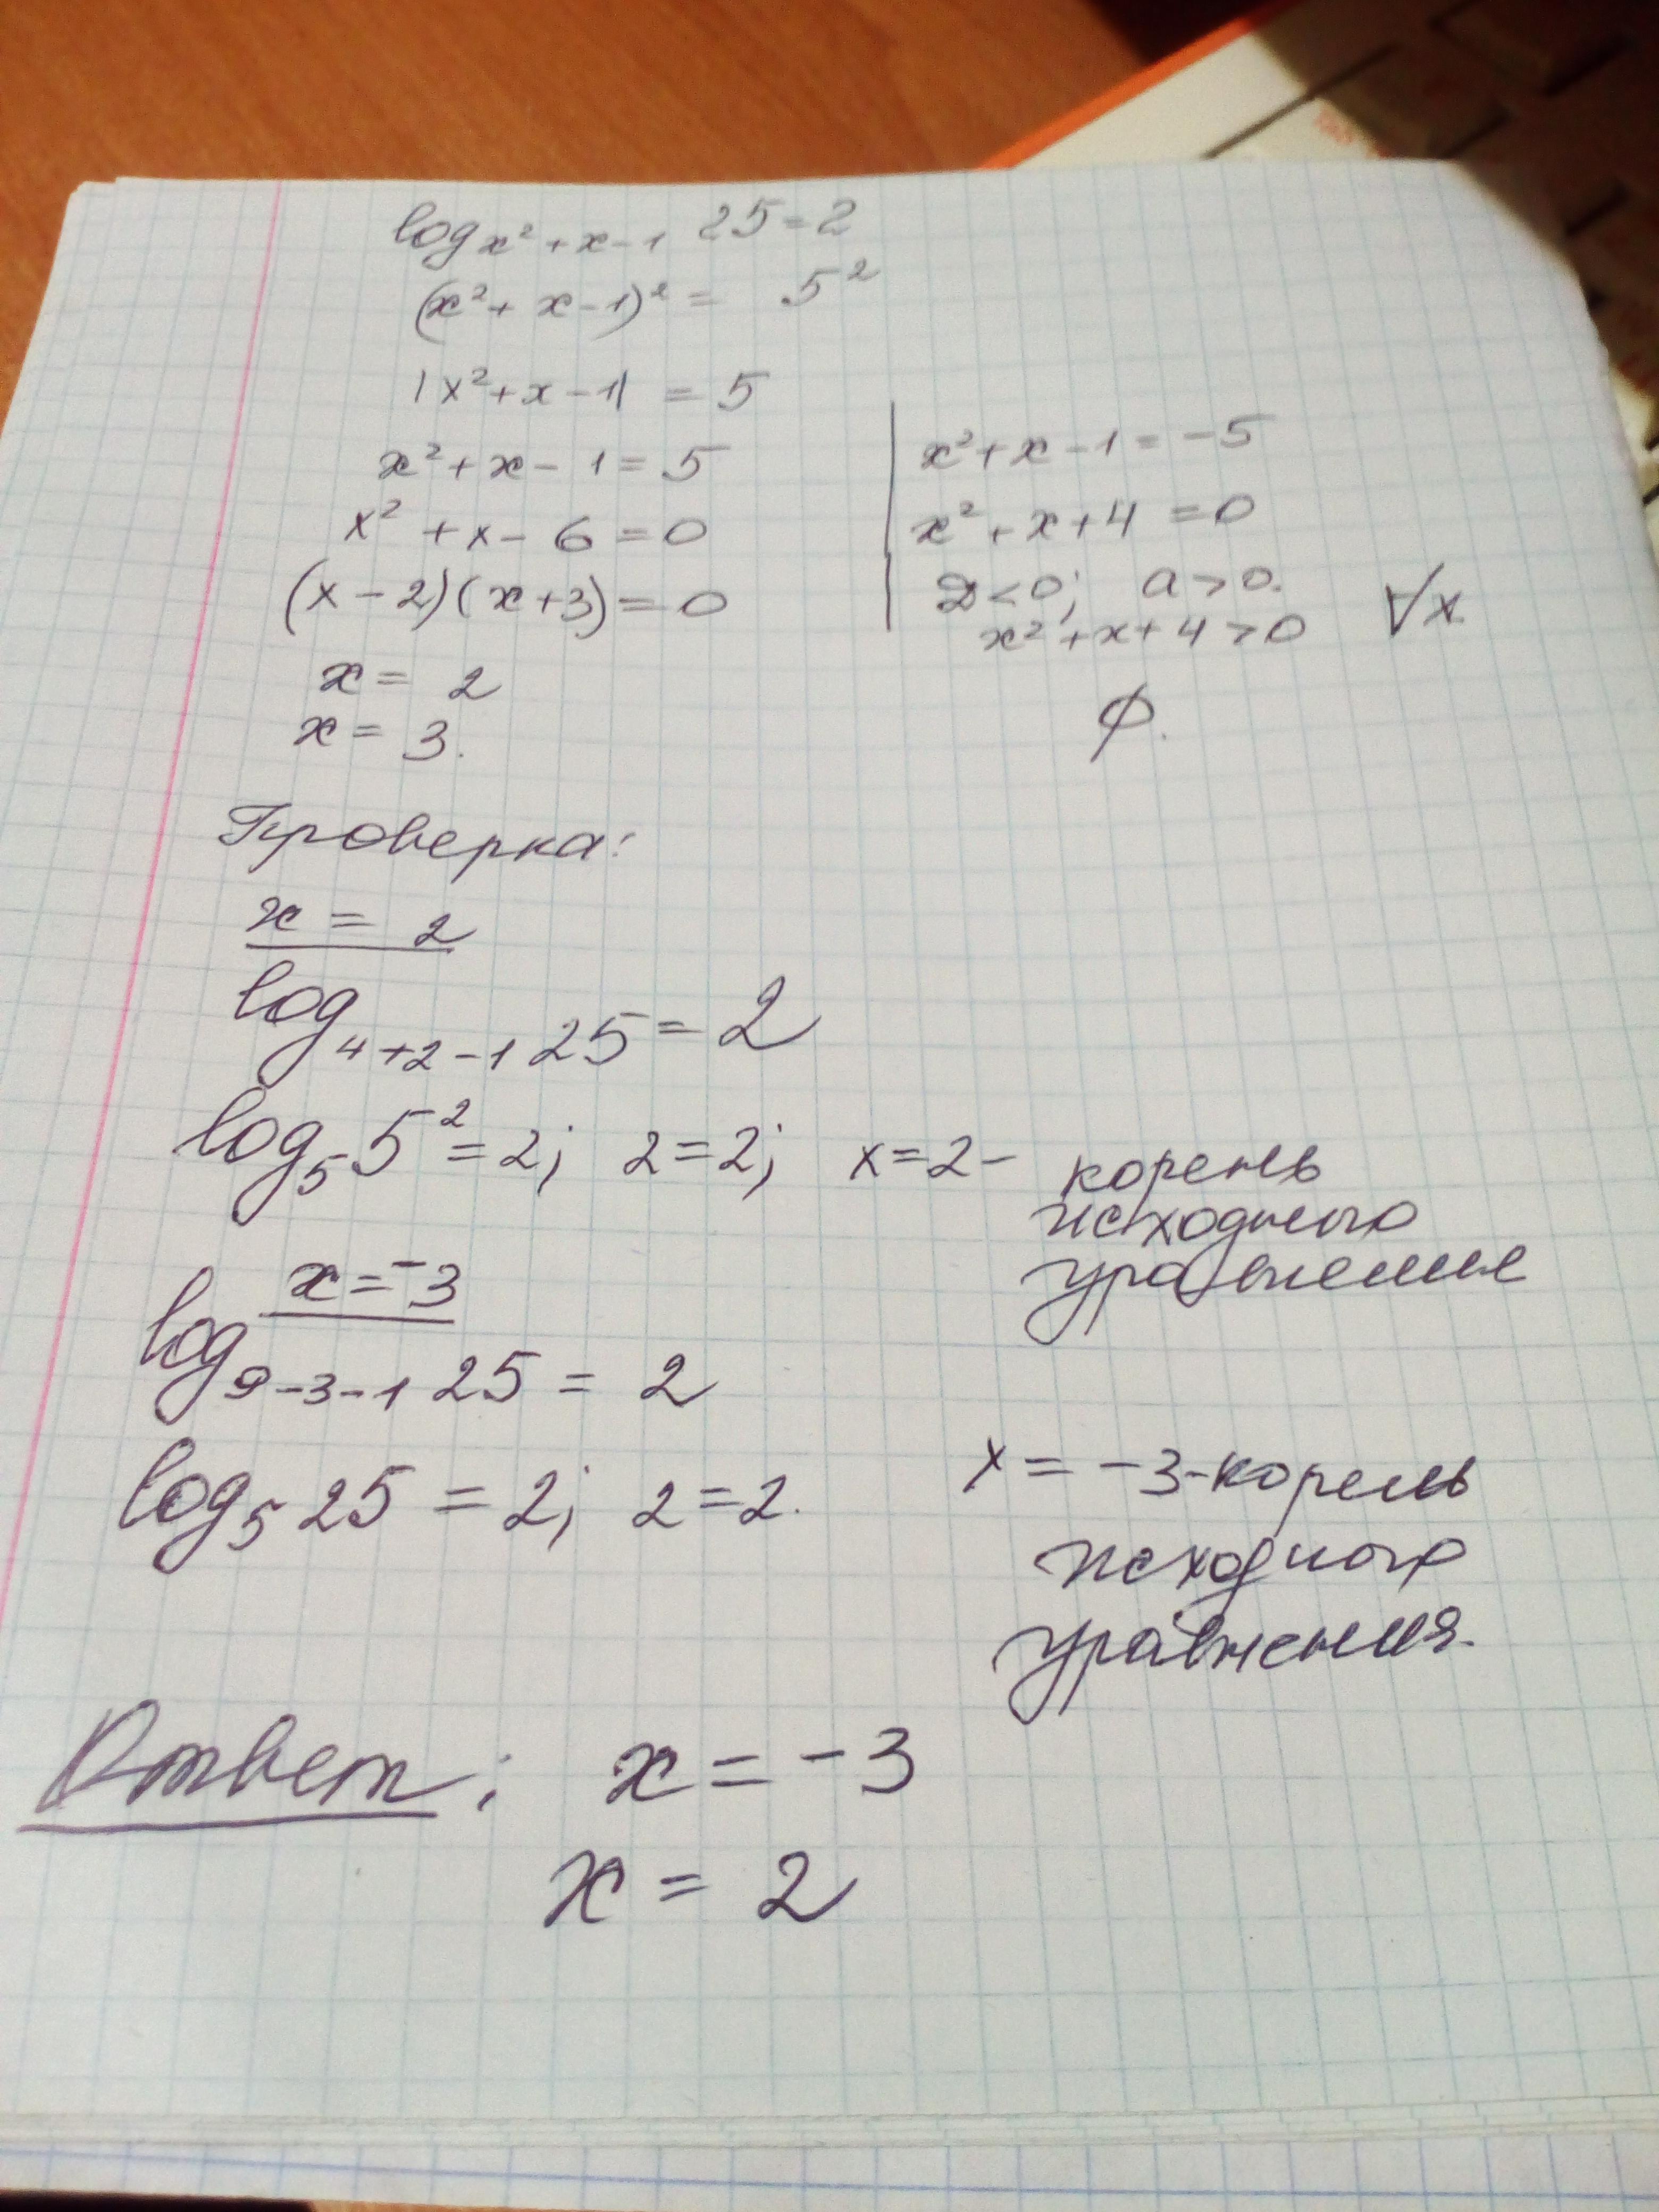 log x²+x-1 25=2
(x²+x-1)² = 5²
|x²+x-1| = 5
x²+x-1=5
x²+x-6=0
(x-2)(x+3)=0
x= 2
x= 3.
x²+x-1=-5
x²+x+4=0
D<0; a>0.
x²+x+4>0 ∀x
∅.
Проверка:
x = 2
log 4+2-1 25=2
log₅5²=2; 2=2; x=2- корень
исходного
уравнение
x=-3
log 9-3-1 25 = 2
log₅25 = 2; 2=2. x=-3-корень
исходного
уравнения.
Ответ: x=-3
x = 2